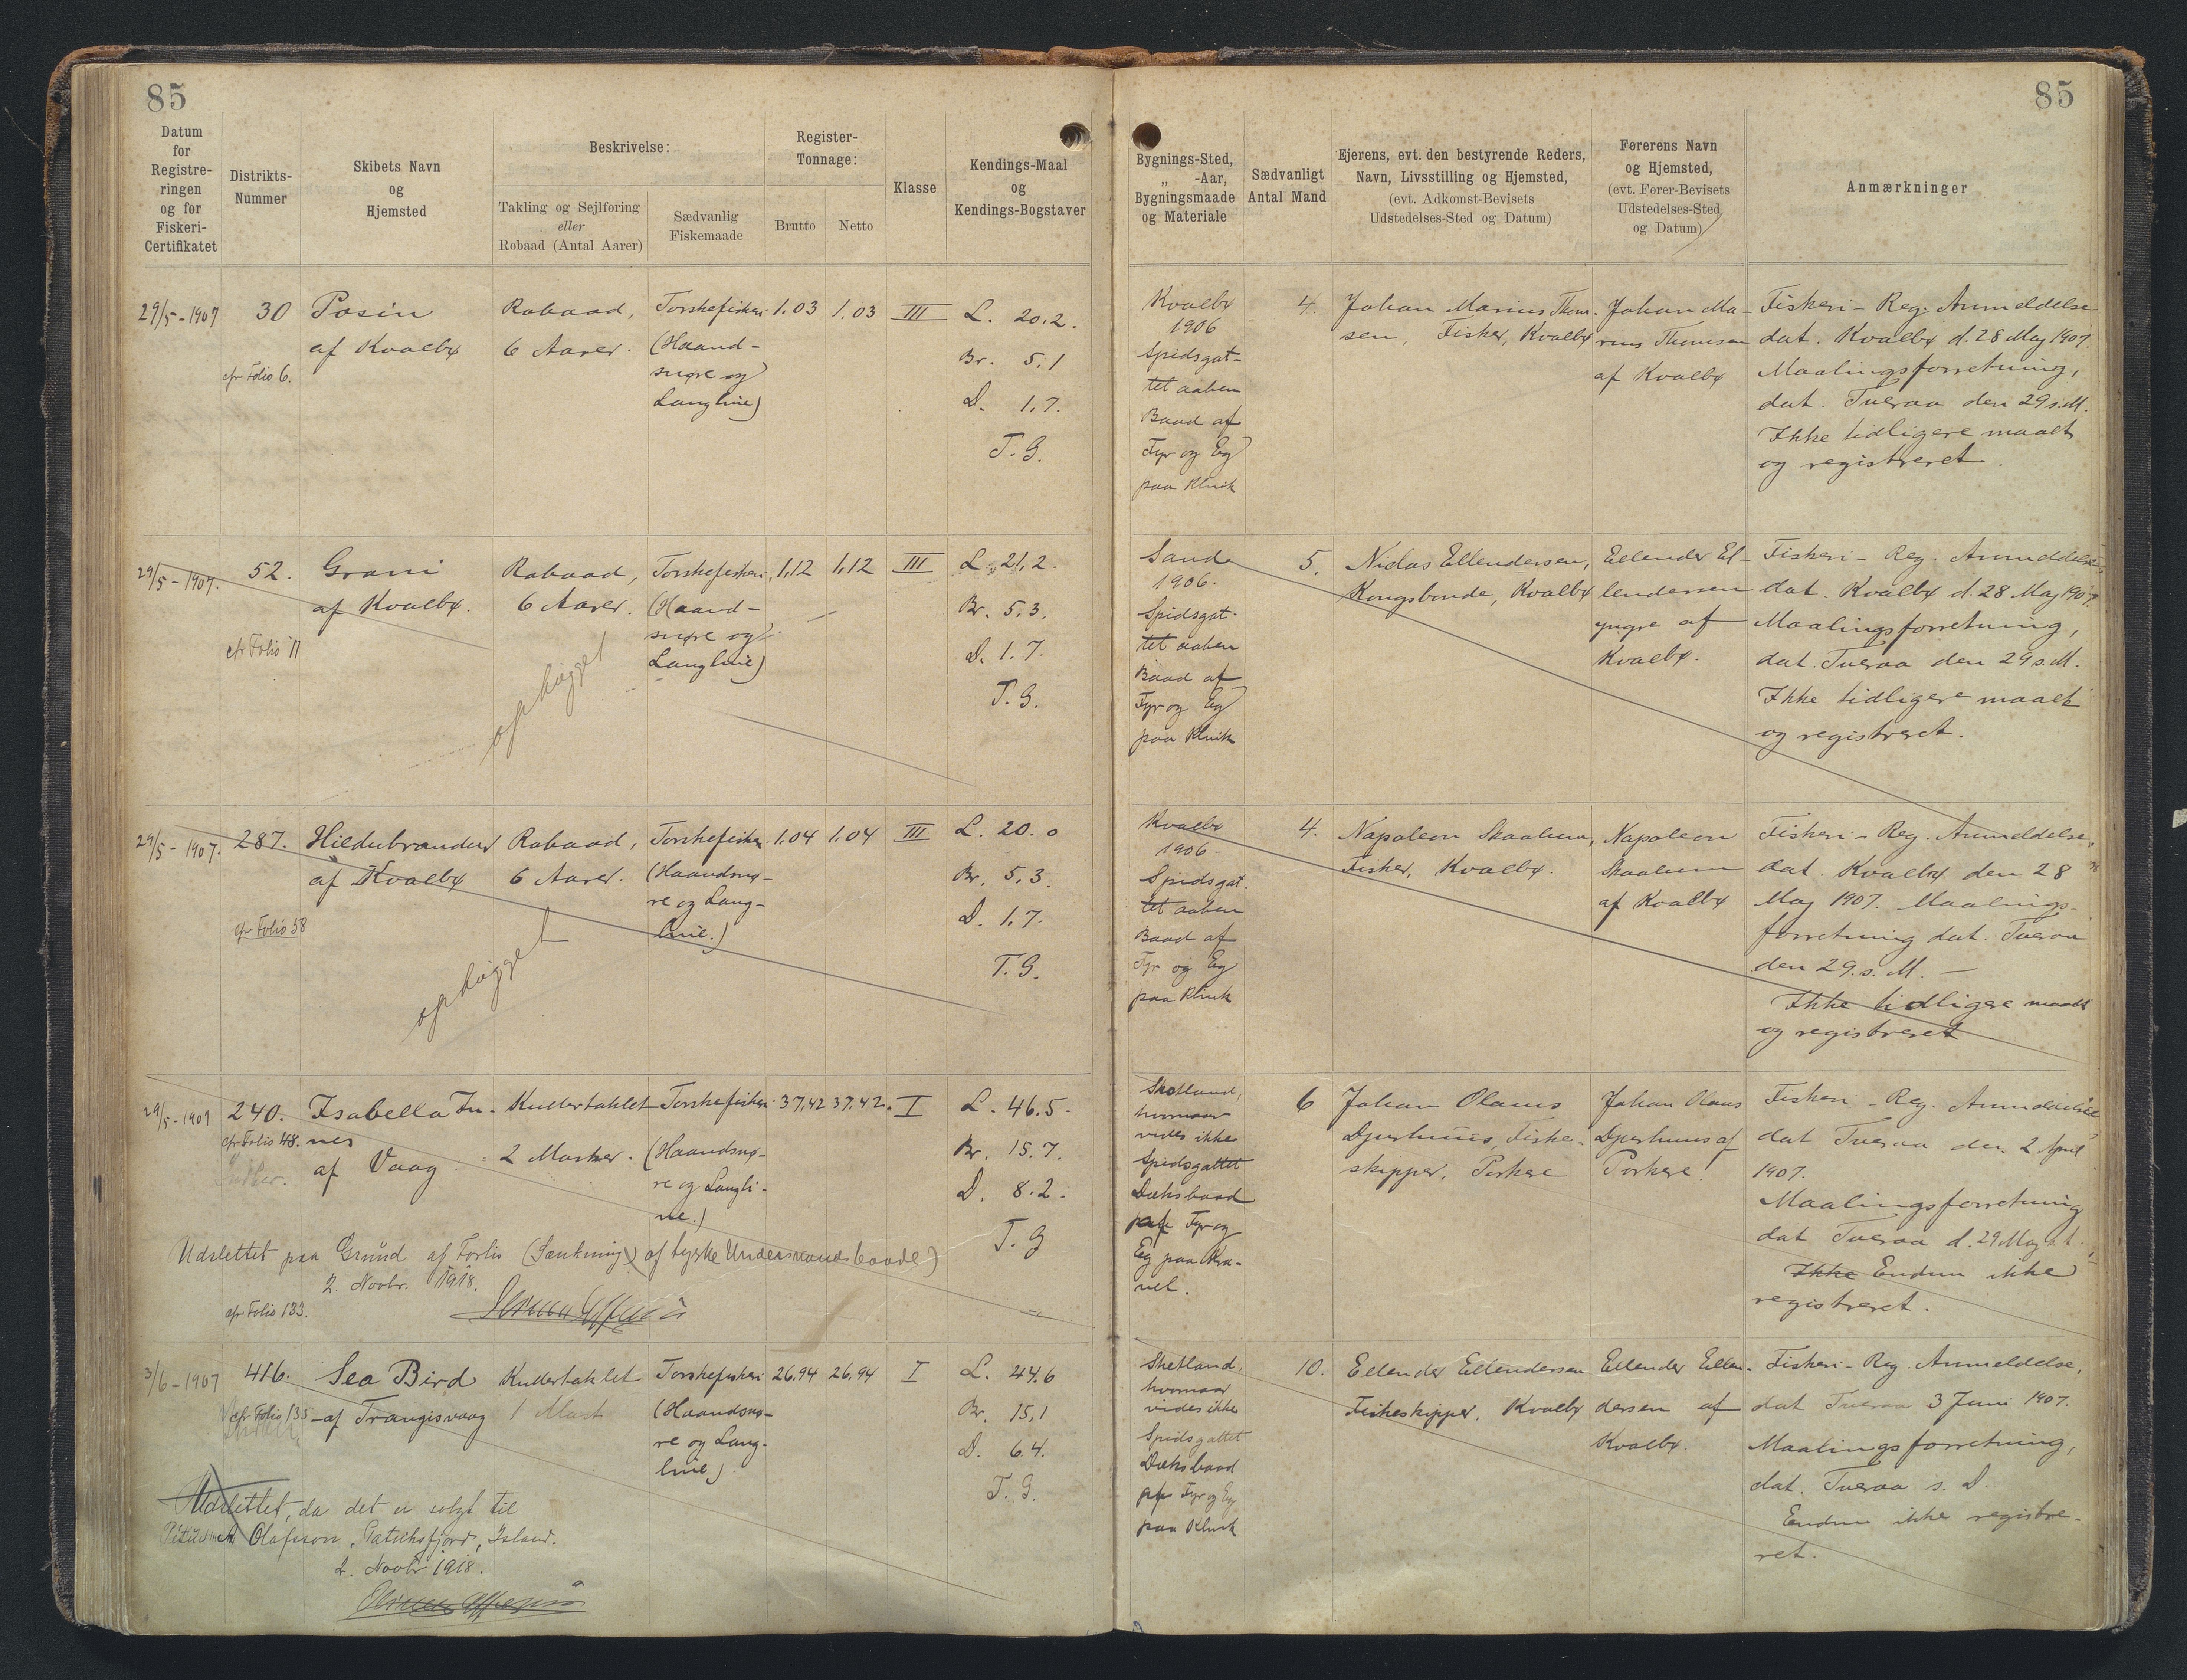 85
85
Datum
for
Registre-
ringen
og for
Fiskeri-
Certifikatet
Distrikts-
Nummer
Skibets Navn
og
Hjemsted
Beskrivelse:
Takling og Sejlføring
eller
Robaad (Antal Aarer)
Sædvanlig
Fiskemaade
Register-
Tonnage:
Brutto
Netto
Klasse
Kendings-Maal
og
Kendings-Bogstaver
Bygnings-Sted,
„ -Aar,
Bygningsmaade
og Materiale
Sædvanligt
Antal Mand
Ejerens, evt. den bestyrende Reders,
Navn, Livsstilling og Hjemsted,
(evt. Adkomst-Bevisets
Udstedelses-Sted og Datum)
Førerens Navn
og Hjemsted,
(evt. Fører-Bevisets
Udstedelses-Sted
og Datum)
Anmærkninger
29/5-1907
30
cfr Folio 6.
Posin
af Kvalbø
Robaad,
6 Aarer.
Torskefiskeri
(Haand-
snøre og
Langline)
1.03
1.03
III
L. 20.2.
Br. 5.1
D. 1.7.
T.G.
Kvalbø
1906
Spidsgat-
tet aaben
Baad af
Fyr og Eg
paa Klink
4.
Johan Marius Thom-
sen, Fisker, Kvalbø
Johan Ma-
rius Thomsen
af Kvalbø
Fiskeri-Reg. Anmeldelse
dat. Kvalbø d. 28 Maj 1907.
Maalingsforretning,
dat. Tveraa den 29 s.M.
Ikke tidligere maalt
og registreret.
29/5-1907.
52.
cfr Folio 11
Grani
af Kvalbø.
Robaad,
6 Aarer.
ophugget
Torskefiskeri
(Haand-
snøre og
Langline)
1,12
1,12
III
L. 21,2.
Br. 5,3.
D. 1.7.
T.G.
Sand
1906.
Spidsgat-
tet aaben
Baad af
Fyr og Eg
paa Klink
5.
Niclas Ellendersen,
Kongsbonde, Kvalbø
Ellender El-
lendersen
yngre af
Kvalbø.
Fiskeri-Reg. Anmeldelse,
dat. Kvalbø d. 28 Maj 1907.
Maalingsforretning,
dat. Tveraa den 29 s.M.
Ikke tidligere maalt
og registreret.
29/5-1907.
287.
cfr Folio 58
Hildebrandur
af Kvalbø
Robaad,
6 Aarer.
ophugget
Torskefiskeri
(Haandsnø-
re og Lang-
line.)
1.04
1.04
III
L. 20.0
Br. 5,3.
D. 1,7.
T.G.
Kvalbø
1906-
Spidsgat-
tet aaben
Baad af
Fyr og Eg
paa Klink
4.
Napoleon Skaalum,
Fisker, Kvalbø.
Napoleon
Skaalum
af Kvalbø
Fiskeri-Reg. Anmeldelse,
dat. Kvalbø den 28
Maj 1907. Maalings-
forretning dat. Tveraa
den 29. s. M. -
Ikke tidligere maalt
og registreret
29/5-1907
240.
cfr Folio 48.
Isabella In-
nes
af Vaag
Kuttertaklet
2 Master.
Torskefiskeri
(Haandsnø-
re og Langli-
ne.)
37,42
37,42.
I
L. 46.5-
Br. 15.7.
D. 8.2.
T.G
Udslettet paa Grund af Forlis (Sænkning) af tyske Undervandsbaade)
2. Novbr. 1918.
cfr Folio 133.
Shetland,
hvornaar
vides ikke
Spidsgattet
Dæksbaad
af Fyr og
Eg paa Kra-
vel.
6
Johan Olaus
Djurhuus, Fiske-
skipper, Porkere
Johan Olaus
Djurhuus af
Porkere!
Fiskeri-Reg. Anmeldelse
dat Tveraa den 2 April
1907.
Maalingsforretning
dat Tveraa d. 29 Maj s.A.
Ikke Endnu ikke
registreret.
3/6-1907
416.
cfr Folio 135
Sea Bird
af Trangisvaag
Kuttertaklet
1 Mast
Torskefiskeri
(Haandsnø-
re og Lang-
line)
26.94
26,94
I
L. 44.6
Br. 15,1
D. 6.4.
T.G.
Udslettet, da det er solgt til
A. Olafsson, Patriksfjord, Island.
2. Novbr 1918.
Shetland,
hvornaar
vides ikke
Spidsgattet
Dæksbaad
af Fyr og Eg
paa Klink
10.
Ellender Ellendersen
Fiskeskipper, Kvalbø
Ellender Ellen-
dersen af
Kvalbø.
Fiskeri-Reg. Anmeldelse,
dat Tveraa 3 Juni 1907.
Maalingsforretning,
dat. Tveraa s. D.
Endnu ikke registre-
ret.